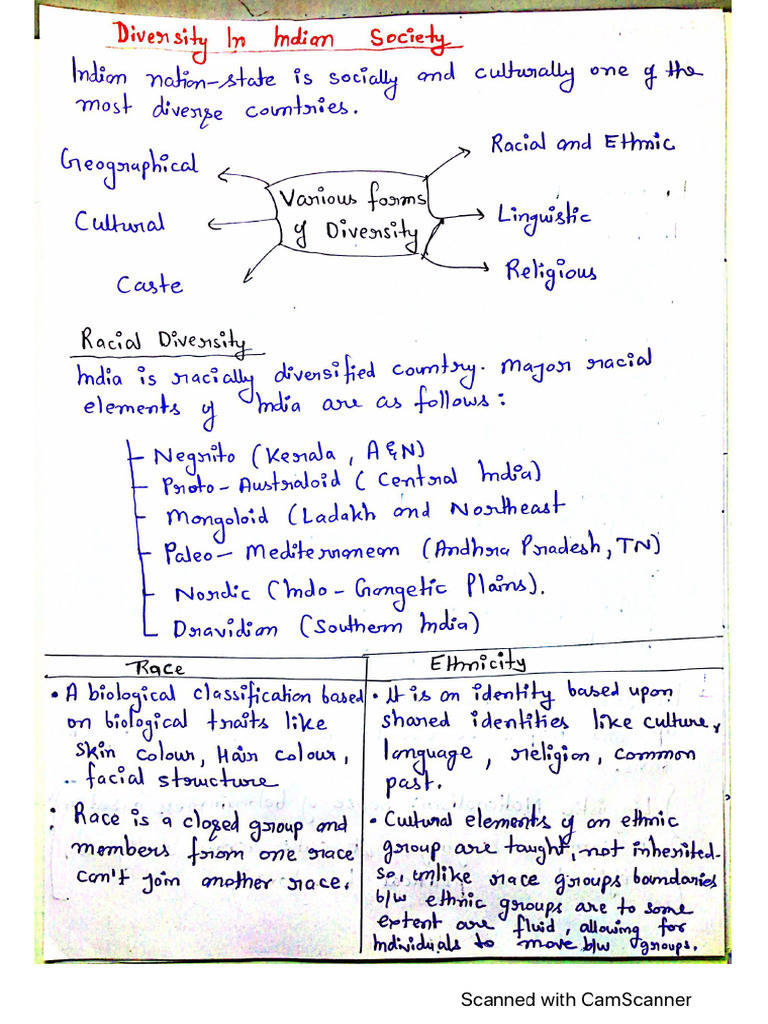 Diversity In Indian Society
Indian nation-state is socially and culturally one of the
most diverse countries.
Geographical
Cultural
Caste
Various forms
of Diversity
Racial and Ethnic
Linguistic
Religious
Racial Diversity
India is racially diversified country. Major racial
elements of India are as follows:
Negrito (Kerala, A&N)
Proto-Australoid (Central India)
Mongoloid (Ladakh and Northeast
Paleo-Mediterranean (Andhra Pradesh, TN)
Nordic (Indo-Gangetic Plains).
Dravidian (Southern India)
Race
• A biological classification based
on biological traits like
skin colour, Hair colour,
facial structure
• Race is a closed group and
members from one race
can't join another race.
Ethnicity
• It is an identity based upon
shared identities like culture,
language, religion, common
past.
• Cultural elements of an ethnic
group are taught, not inherited.
so, unlike race groups boundaries
b/w ethnic groups are to some
extent are fluid, allowing for
Individuals to move b/w groups.
Scanned with CamScanner